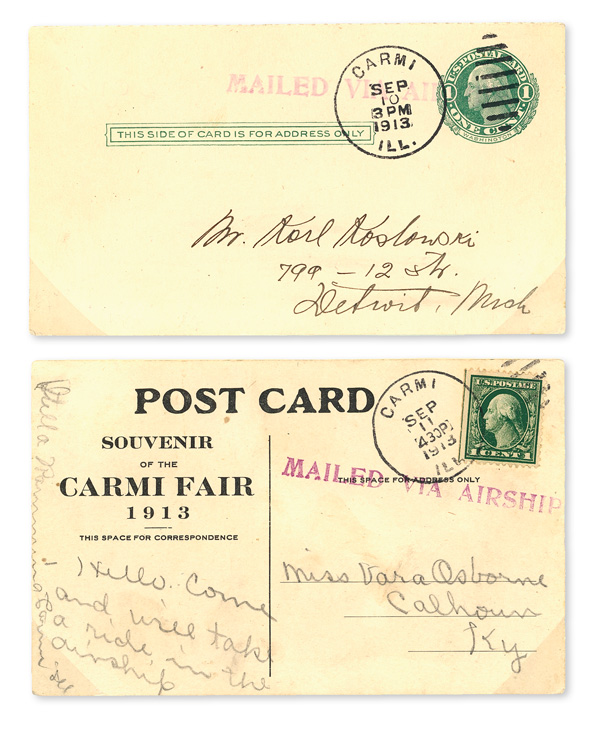 MAILED VIA AI
CARMI
SEP
10
3 PM
1913
ILL.
U.S. POSTAL CARD
1 1
ONE CENT
WASHINGTON
THIS SIDE OF CARD IS FOR ADDRESS ONLY
Mr. Karl Koslowski
799 – 12 Str.
Detroit, Mich
POST CARD
SOUVENIR
OF THE
CARMI FAIR
1913
THIS SPACE FOR CORRESPONDENCE
Hello. Come
and we'll take
a ride in the
airship
CARMI
SEP
11
430P
1913
ILL
U.S. POSTAGE
1 CENT 1
MAILED VIA AIRSHIP
THIS SPACE FOR ADDRESS ONLY
Miss Vara Osborne
Calhoun
Ky